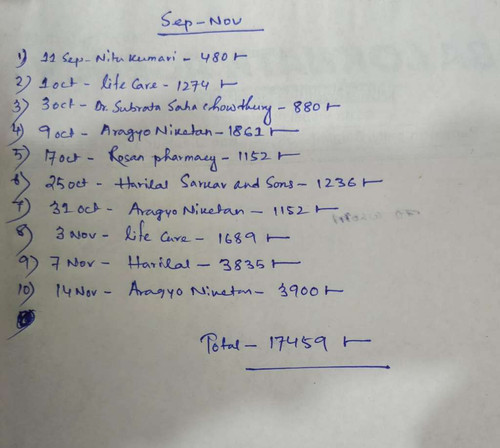 Sep-Nov
1) 11 Sep- Nitu Kumari - 480/-
2) 1 oct - life Care - 1274/-
3) 3 oct - Dr. Subrata Saha Chowdhury - 880/-
4) 9 oct - Aragyo Niketan - 1861/-
5) 17 oct - Rosan pharmacy - 1152/-
6) 25 oct - Harilal Sarkar and Sons - 1236/-
7) 31 oct - Aragyo Niketan - 1152/-
8) 3 Nov - life Care - 1689/-
9) 7 Nov - Harilal - 3835/-
10) 14 Nov - Aragyo Niketan - 3900/-
Total - 17459/-